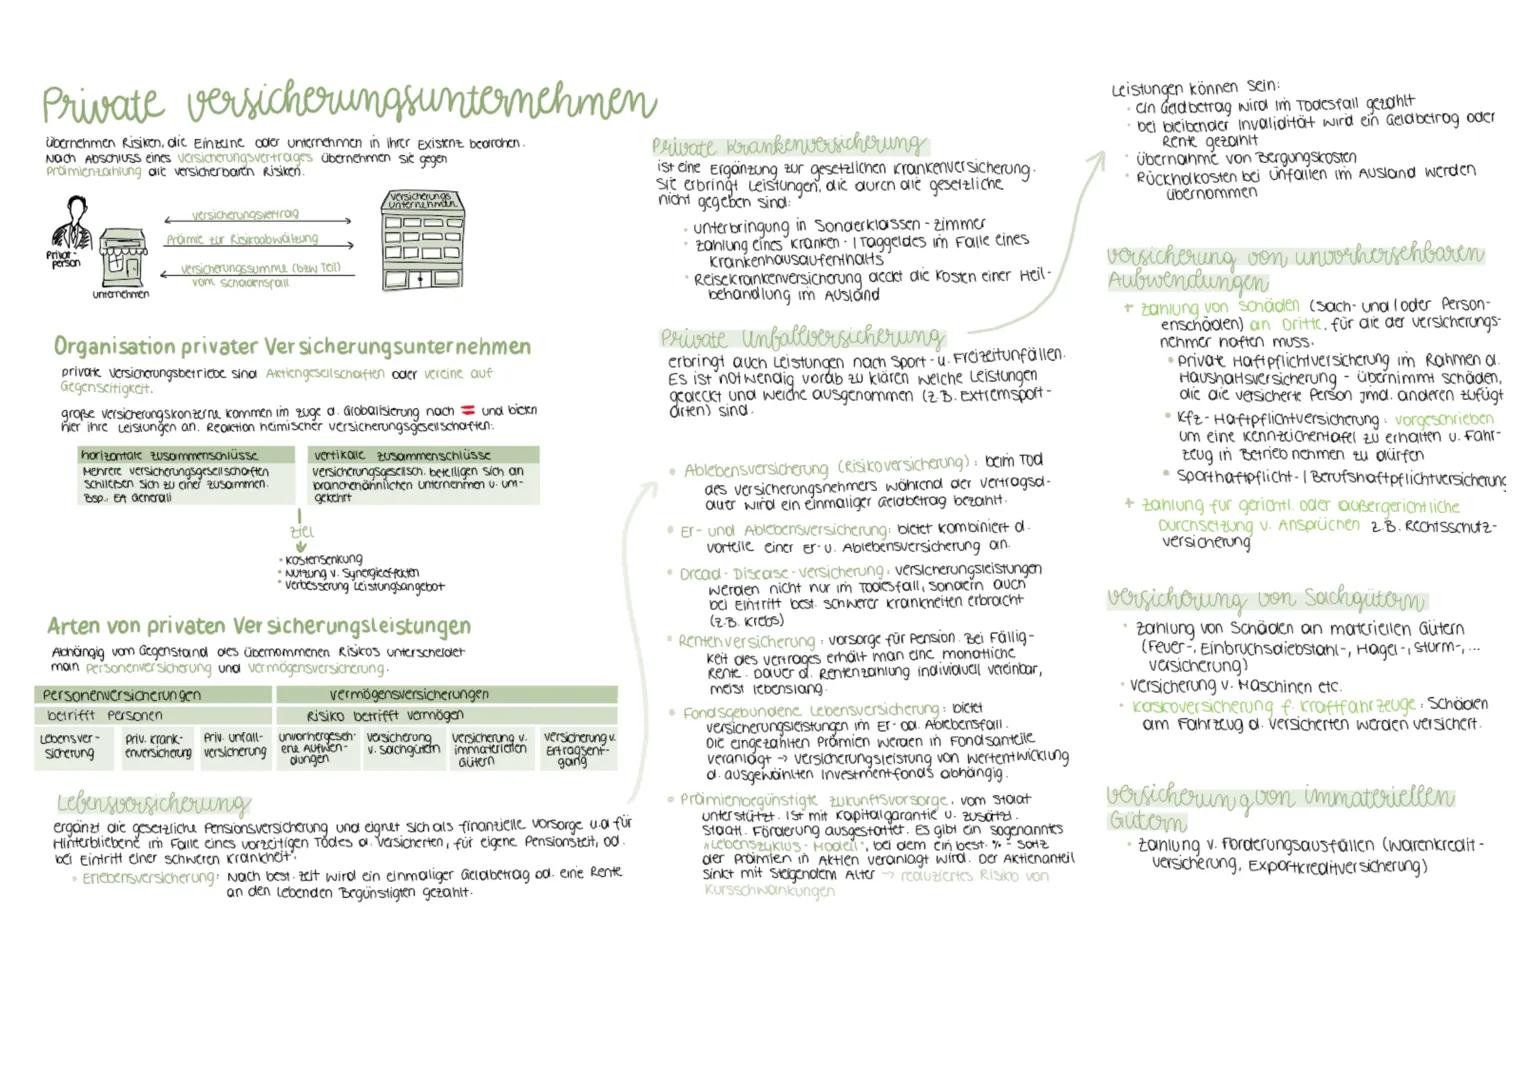 Private versicherungsunternehmen
übernehmen Risiken, die Einzelne oder unternehmen in ihrer Existenz bedrohen.
Nach Abschluss eines versicherungsvertrages übernehmen sie gegen
Prämienzahlung die versicherbaren Risiken.
Privat-
person
unternehmen
versicherungsvertrag
Prämie zur Risikoabwälzung
versicherungssumme (bzw Teil)
vom schadensfall
versicherungs
unternehmen
Organisation privater Versicherungsunternehmen
private versicherungsbetriebe sind Aktiengesellschaften oder vereine auf
Gegenseitigkeit.
große versicherungskonzerne kommen im zuge d. Globalisierung nach und bieten
hier ihre Leistungen an. Reaktion heimischer versicherungsgesellschaften:
horizontale zusammenschlüsse
Mehrere versicherungsgesellschaften
schließen sich zu einer zusammen.
Bsp.: EA Generali
vertikale zusammenschlüsse
versicherungsgesellsch. beteiligen sich an
branchenähnlichen unternehmen u. um-
gekehrt
ziel
• kostensenkung
• Nutzung v. Synergieeffekten
• verbesserung Leistungsangebot
Arten von privaten Versicherungsleistungen
Abhängig vom Gegenstand des übernommenen Risikos unterscheidet
man Personenversicherung und vermögensversicherung.
Personenversicherungen
vermögensversicherungen
betrifft Personen
Risiko betrifft vermögen
Lebensver-
sicherung
priv. krank-
enversicherung
Priv. unfall-
versicherung
unvorhergeseh-
ene Aufwen-
dungen
versicherung
v. sachgütern
versicherung v.
immateriellen
Gütern
versicherung v.
Ertragsent-
gang
Lebensversicherung
ergänzt die gesetzliche Pensionsversicherung und eignet sich als finanzielle vorsorge u.a für
Hinterbliebene im Falle eines vorzeitigen Todes d. versicherten, für eigene Pensionszeit, od.
bei Eintritt einer schweren krankheit.
• Erlebensversicherung: Nach best. zeit wird ein einmaliger Geldbetrag od. eine Rente
an den lebenden Begünstigten gezahlt.
Private krankenversicherung
ist eine Ergänzung zur gesetzlichen krankenversicherung.
sie erbringt Leistungen, die durch die gesetzliche
nicht gegeben sind:
• unterbringung in Sonderklassen-zimmer
• zahlung eines kranken-/Taggeldes im Falle eines
krankenhausaufenthalts
• Reisekrankenversicherung deckt die kosten einer Heil-
behandlung im Ausland
Private Unfallversicherung
erbringt auch Leistungen nach Sport- u. Freizeitunfällen.
Es ist notwendig vorab zu klären welche Leistungen
gedeckt und welche ausgenommen (z.B. Extremsport-
arten) sind.
• Ablebensversicherung (Risikoversicherung): beim Tod
des versicherungsnehmers während der vertragsd-
auer wird ein einmaliger Geldbetrag bezahlt.
• Er- und Ablebensversicherung: bietet kombiniert d.
vorteile einer er- u. Ablebensversicherung an.
• Dread-Disease-versicherung: versicherungsleistungen
werden nicht nur im Todesfall, sondern auch
bei Eintritt best. schwerer krankheiten erbracht
(z.B. krebs)
• Rentenversicherung: vorsorge für Pension. Bei Fällig-
keit des vertrages erhält man eine monatliche
Rente. Dauer d. Rentenzahlung individuell vereinbar,
meist lebenslang.
• Fondsgebundene Lebensversicherung: bietet
versicherungsleistungen im Er- od. Ablebensfall.
Die eingezahlten Prämien werden in Fondsanteile
veranlagt → versicherungsleistung von wertentwicklung
d. ausgewählten Investmentfonds abhängig.
• Prämienbegünstigte zukunftsvorsorge, vom Staat
unterstützt. Ist mit Kapitalgarantie u. zusätzl.
Staatl. Förderung ausgestattet. Es gibt ein sogenanntes
„Lebenszyklus-Modell", bei dem ein best. %-satz
der Prämien in Aktien veranlagt wird. Der Aktienanteil
sinkt mit steigendem Alter → reduziertes Risiko von
kursschwankungen
Leistungen können sein:
• ein Geldbetrag wird im Todesfall gezahlt
• bei bleibender Invalidität wird ein Geldbetrag oder
Rente gezahlt
• übernahme von Bergungskosten
• Rückholkosten bei unfällen im Ausland werden
übernommen
versicherung von unvorhersehbaren
Aufwendungen
+ zahlung von schäden (sach- und/oder Person-
enschäden) an Dritte, für die der versicherungs-
nehmer haften muss.
• Private Haftpflichtversicherung im Rahmen d.
Haushaltsversicherung - übernimmt schäden,
die die versicherte Person jmd. anderen zufügt
• kfz-Haftpflichtversicherung: vorgeschrieben
um eine kennzeichentafel zu erhalten u. Fahr-
zeug in Betrieb nehmen zu dürfen
• Sporthaftpflicht-/Berufshaftpflichtversicherung
+ zahlung für gerichtl. oder außergerichtliche
Durchsetzung v. Ansprüchen z.B. Rechtsschutz-
versicherung
versicherung von Sachgütern
• zahlung von Schäden an materiellen Gütern
(Feuer-, Einbruchsdiebstahl-, Hagel-, sturm-,...
versicherung)
• versicherung v. Maschinen etc.
• kaskoversicherung f. kraftfahrzeuge: Schäden
am Fahrzeug d. versicherten werden versichert.
versicherung von immateriellen
Gütern
• zahlung v. Forderungsausfällen (warenkredit-
versicherung, Exportkreditversicherung)